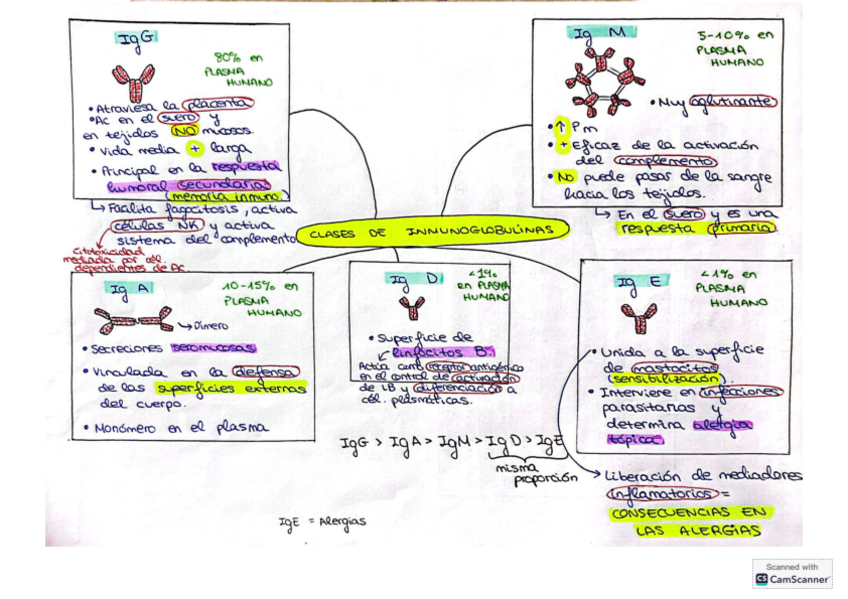 IgG
80% en
PLASMA
HUMANO
• Atraviesa la placenta
• Ac en el suero y
en tejidos NO mucosos.
• Vida media + larga
• Principal en la respuesta
humoral secundaria
(memoria inmuno)
↳ Facilita fagocitosis, activa
células NK y activa
sistema del complemento
Citotoxicidad
mediada por cél.
dependientes de Ac.
Ig M
5-10% en
PLASMA
HUMANO
• Muy aglutinante
• ↑ Pm
• + Eficaz de la activación
del complemento
• No puede pasar de la sangre
hacia los tejidos.
↳ En el suero y es una
respuesta primaria.
CLASES DE INMUNOGLOBULINAS
Ig A
10-15% en
PLASMA
HUMANO
→ Dímero
• Secreciones seromucosas
• Vinculada en la defensa
de las superficies externas
del cuerpo.
• Monómero en el plasma
Ig D
<1%
en PLASMA
HUMANO
• Superficie de
linfocitos B.
Actúa como receptor antigénico
en el control de activación
de LB y diferenciación a
cél. plasmáticas.
Ig E
<1% en
PLASMA
HUMANO
• Unida a la superficie
de mastocitos
(sensibilización).
• Interviene en infecciones
parasitarias y
determina alergia
tópica.
→ Liberación de mediadores
inflamatorios =
CONSECUENCIAS EN
LAS ALERGIAS
IgG > IgA > IgM > IgD > IgE
misma
proporción
IgE = Alergias
Scanned with
CS CamScanner